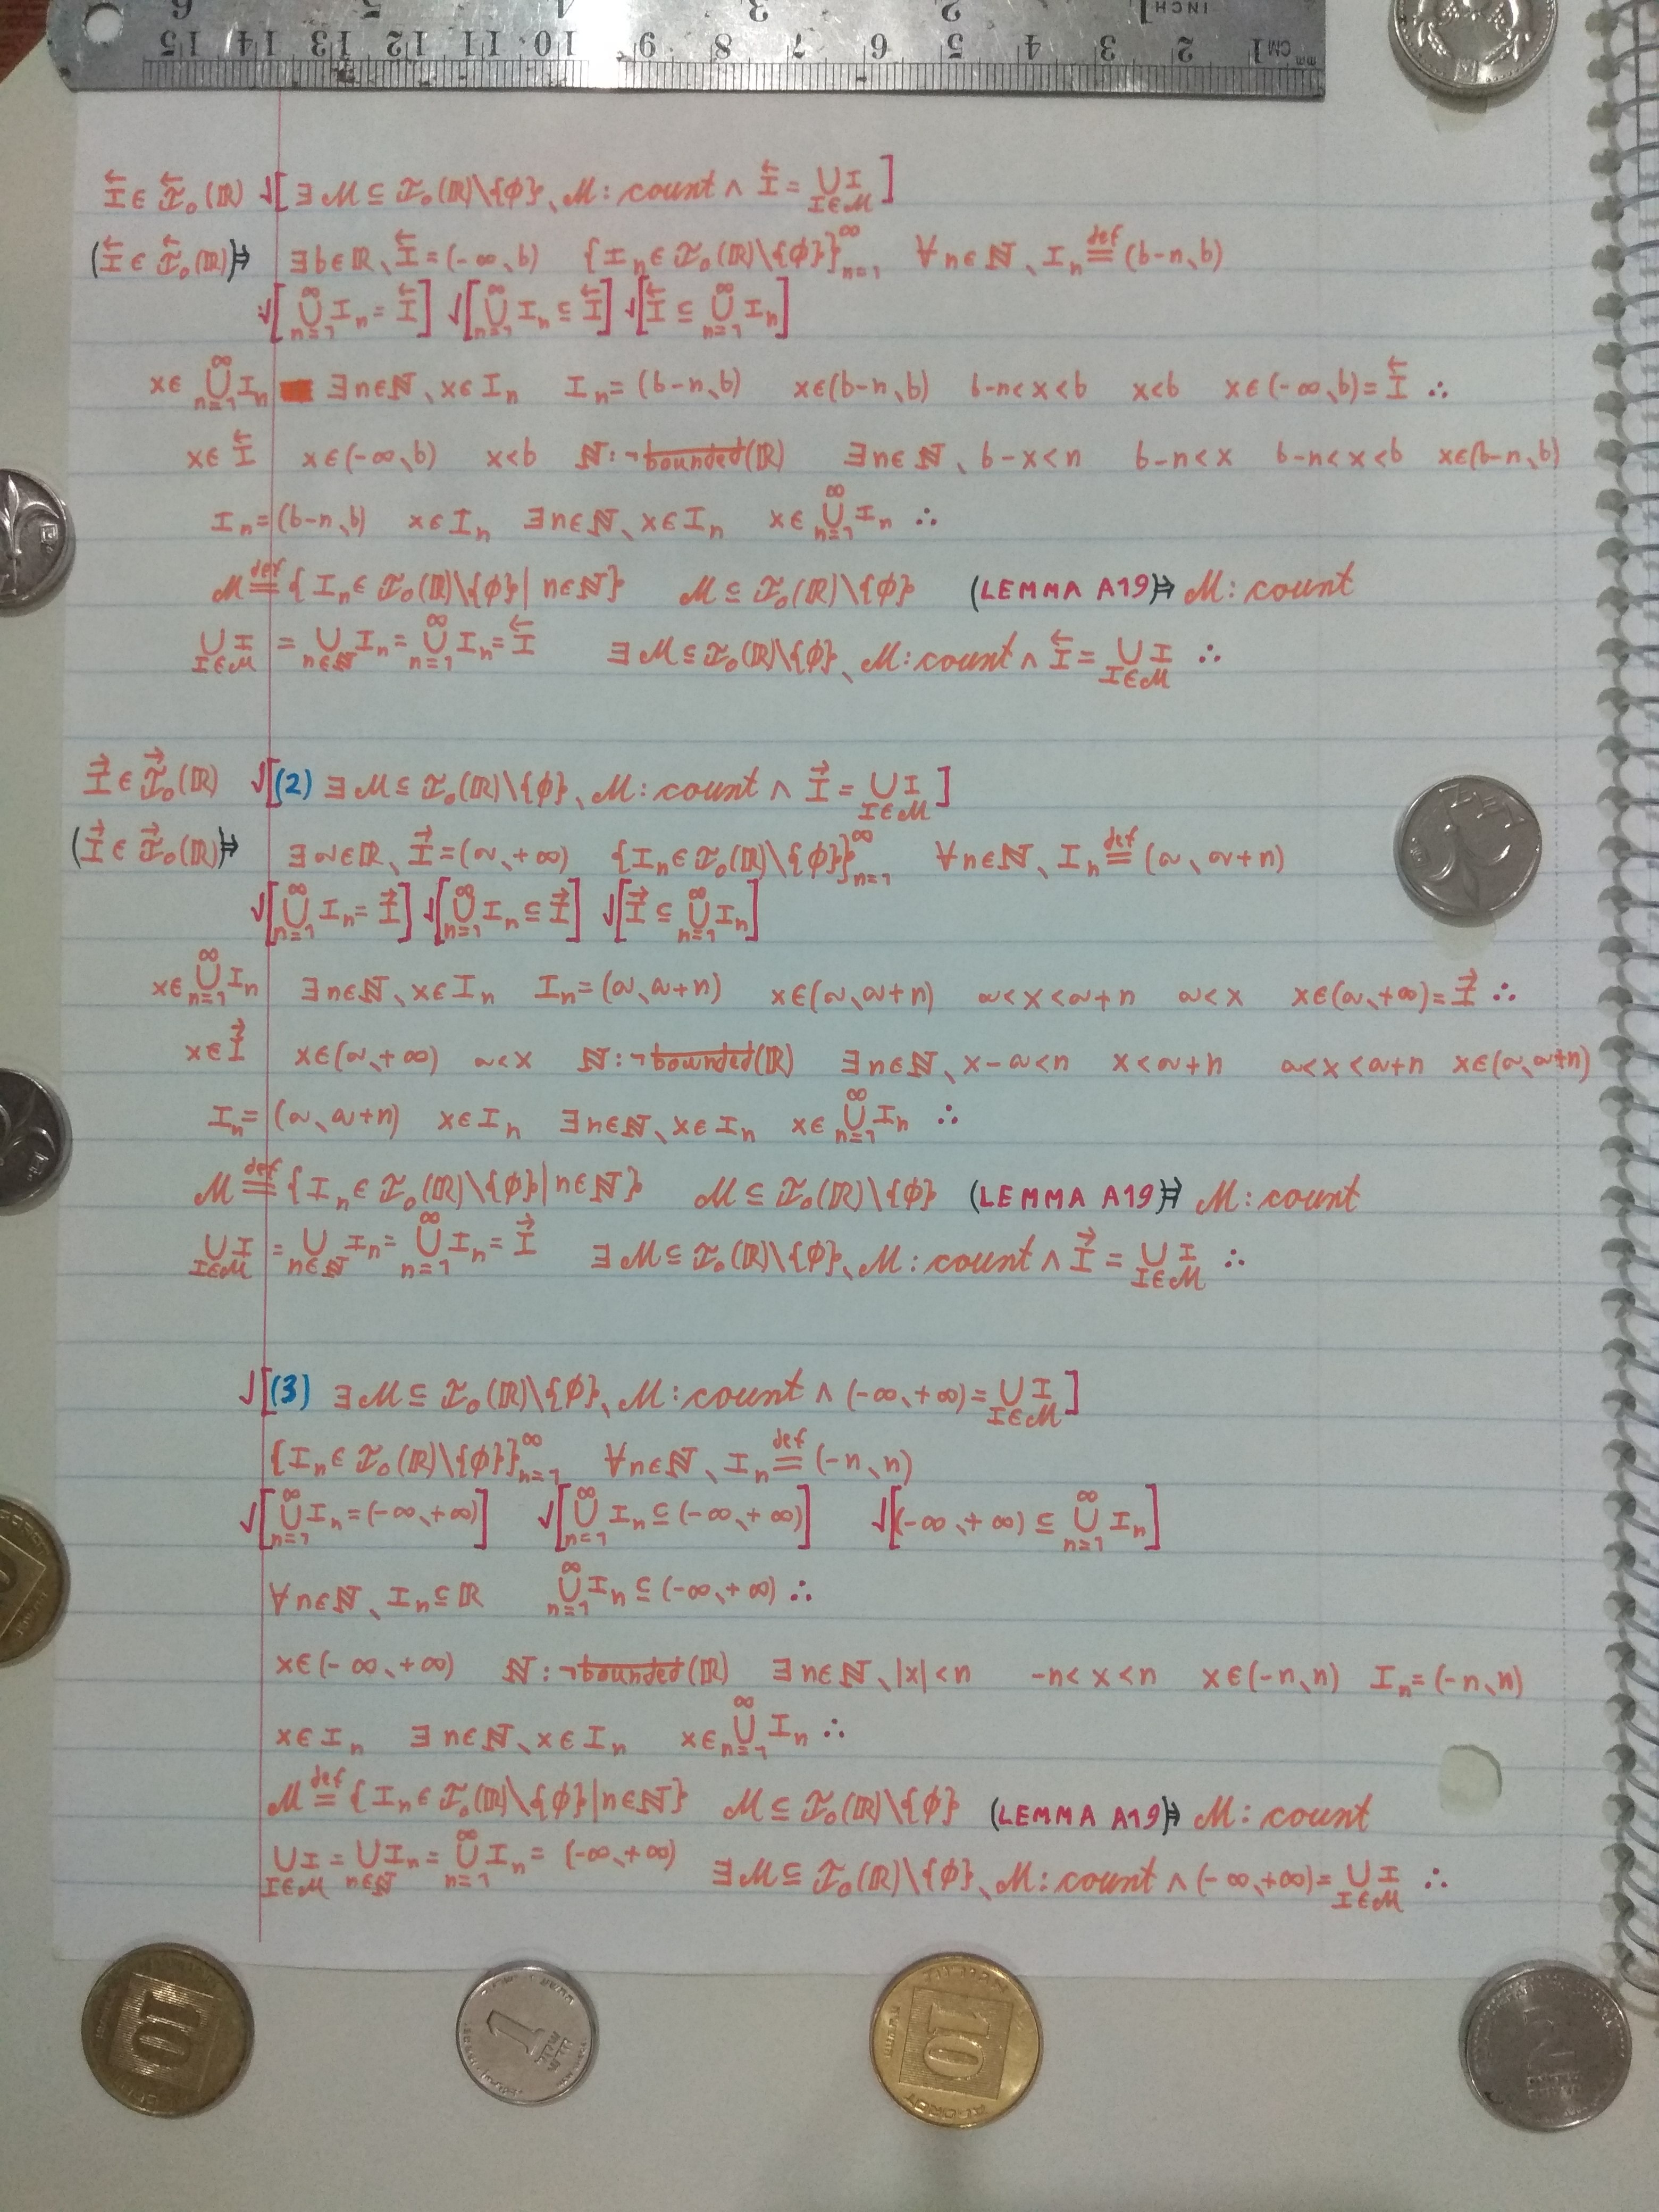 6 5 4 3 2 1 INCH
15 14 13 12 11 10 9 8 7 6 5 4 3 2 1 CM mm
I⃖ ∈ 𝓘⃖ₒ(ℝ) √[∃ℳ ⊆ 𝓘ₒ(ℝ)\{∅}、ℳ: count ∧ I⃖ = ⋃_{I∈ℳ} I]
(I⃖ ∈ 𝓘⃖ₒ(ℝ))⇒ ∃b∈ℝ、I⃖ = (-∞、b) {Iₙ ∈ 𝓘ₒ(ℝ)\{∅}}_{n=1}^∞ ∀n∈ℕ、Iₙ ≝ (b-n、b)
√[⋃_{n=1}^∞ Iₙ = I⃖] √[⋃_{n=1}^∞ Iₙ ⊆ I⃖] √[I⃖ ⊆ ⋃_{n=1}^∞ Iₙ]
x∈ ⋃_{n=1}^∞ Iₙ ∃n∈ℕ、x∈Iₙ Iₙ = (b-n、b) x∈(b-n、b) b-n<x<b x<b x∈(-∞、b) = I⃖ ∴
x∈ I⃖ x∈(-∞、b) x<b ℕ: ¬bounded(ℝ) ∃n∈ℕ、b-x<n b-n<x b-n<x<b x∈(b-n、b)
Iₙ = (b-n、b) x∈Iₙ ∃n∈ℕ、x∈Iₙ x∈ ⋃_{n=1}^∞ Iₙ ∴
ℳ ≝ {Iₙ ∈ 𝓘ₒ(ℝ)\{∅} | n∈ℕ} ℳ ⊆ 𝓘ₒ(ℝ)\{∅} (LEMMA A19)⇒ ℳ: count
⋃_{I∈ℳ} I = ⋃_{n∈ℕ} Iₙ = ⋃_{n=1}^∞ Iₙ = I⃖ ∃ℳ ⊆ 𝓘ₒ(ℝ)\{∅}、ℳ: count ∧ I⃖ = ⋃_{I∈ℳ} I ∴
I⃗ ∈ 𝓘⃗ₒ(ℝ) √[(2) ∃ℳ ⊆ 𝓘ₒ(ℝ)\{∅}、ℳ: count ∧ I⃗ = ⋃_{I∈ℳ} I]
(I⃗ ∈ 𝓘⃗ₒ(ℝ))⇒ ∃a∈ℝ、I⃗ = (a、+∞) {Iₙ ∈ 𝓘ₒ(ℝ)\{∅}}_{n=1}^∞ ∀n∈ℕ、Iₙ ≝ (a、a+n)
√[⋃_{n=1}^∞ Iₙ = I⃗] √[⋃_{n=1}^∞ Iₙ ⊆ I⃗] √[I⃗ ⊆ ⋃_{n=1}^∞ Iₙ]
x∈ ⋃_{n=1}^∞ Iₙ ∃n∈ℕ、x∈Iₙ Iₙ = (a、a+n) x∈(a、a+n) a<x<a+n a<x x∈(a、+∞) = I⃗ ∴
x∈ I⃗ x∈(a、+∞) a<x ℕ: ¬bounded(ℝ) ∃n∈ℕ、x-a<n x<a+n a<x<a+n x∈(a、a+n)
Iₙ = (a、a+n) x∈Iₙ ∃n∈ℕ、x∈Iₙ x∈ ⋃_{n=1}^∞ Iₙ ∴
ℳ ≝ {Iₙ ∈ 𝓘ₒ(ℝ)\{∅} | n∈ℕ} ℳ ⊆ 𝓘ₒ(ℝ)\{∅} (LEMMA A19)⇒ ℳ: count
⋃_{I∈ℳ} I = ⋃_{n∈ℕ} Iₙ = ⋃_{n=1}^∞ Iₙ = I⃗ ∃ℳ ⊆ 𝓘ₒ(ℝ)\{∅}、ℳ: count ∧ I⃗ = ⋃_{I∈ℳ} I ∴
√[(3) ∃ℳ ⊆ 𝓘ₒ(ℝ)\{∅}、ℳ: count ∧ (-∞、+∞) = ⋃_{I∈ℳ} I]
{Iₙ ∈ 𝓘ₒ(ℝ)\{∅}}_{n=1}^∞ ∀n∈ℕ、Iₙ ≝ (-n、n)
√[⋃_{n=1}^∞ Iₙ = (-∞、+∞)] √[⋃_{n=1}^∞ Iₙ ⊆ (-∞、+∞)] √[(-∞、+∞) ⊆ ⋃_{n=1}^∞ Iₙ]
∀n∈ℕ、Iₙ ⊆ ℝ ⋃_{n=1}^∞ Iₙ ⊆ (-∞、+∞) ∴
x∈(-∞、+∞) ℕ: ¬bounded(ℝ) ∃n∈ℕ、|x|<n -n<x<n x∈(-n、n) Iₙ = (-n、n)
x∈Iₙ ∃n∈ℕ、x∈Iₙ x∈ ⋃_{n=1}^∞ Iₙ ∴
ℳ ≝ {Iₙ ∈ 𝓘ₒ(ℝ)\{∅} | n∈ℕ} ℳ ⊆ 𝓘ₒ(ℝ)\{∅} (LEMMA A19)⇒ ℳ: count
⋃_{I∈ℳ} I = ⋃_{n∈ℕ} Iₙ = ⋃_{n=1}^∞ Iₙ = (-∞、+∞) ∃ℳ ⊆ 𝓘ₒ(ℝ)\{∅}、ℳ: count ∧ (-∞、+∞) = ⋃_{I∈ℳ} I ∴
10
1
10
2